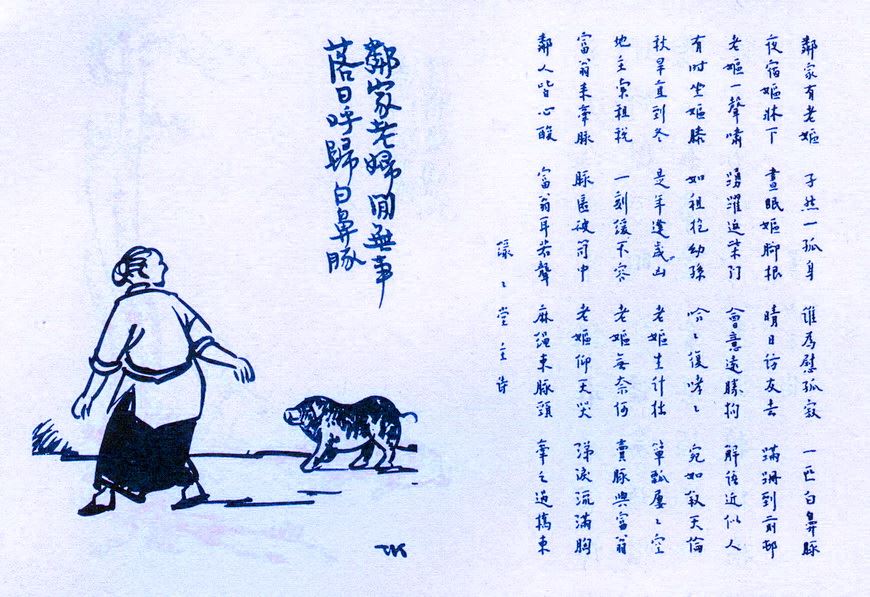 鄰家有老嫗 孑然一孤身 誰為慰孤寂 一匹白鼻豚
夜宿嫗牀下 晝眠嫗腳根 晴日訪友去 蹣跚到前邨
老嫗一聲嘯 湧躍返柴門 會意遠勝狗 解語近似人
有时坐嫗膝 如祖抱幼孫 哈々復哮々 宛如敘天倫
秋旱直到冬 是年遭歲凶 老嫗生計拙 簞瓢屢々空
地主索租稅 一刻緩不容 老嫗無奈何 賣豚與富翁
富翁來牽豚 豚匿破中 老嫗仰天哭 涕淚流滿胸
鄰人皆心酸 富翁耳若聾 麻繩束豚頭 牽之過橋東
緣々堂主詩
鄰家老婦閒無事
落日呼歸白鼻豚
TK